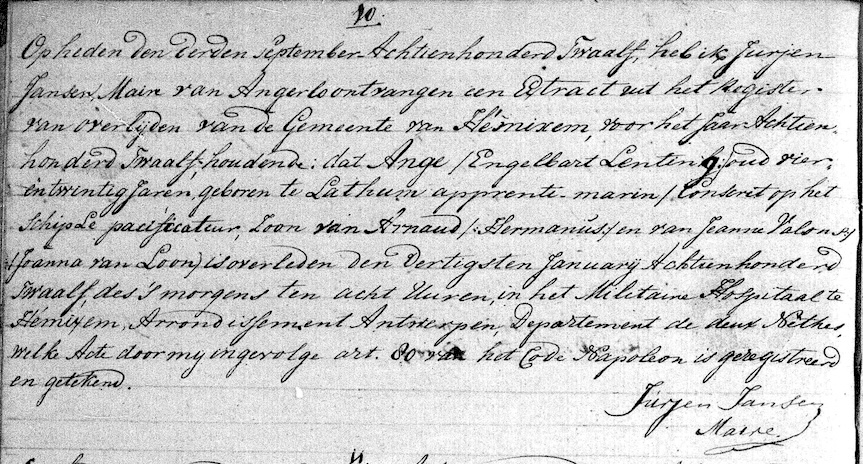 10.
Op heden den derden September Achtienhonderd Twaalf, heb ik Jurjen
Jansen, Maire van Angerlo ontvangen een Extract uit het Register
van overlijden van de Gemeente van Hémixem, voor het Jaar Achtien-
honderd Twaalf, houdende: dat Ange /: Engelbart Lenten :/ oud vier-
entwintig Jaren, geboren te Lathum apprente-marin / Conscrit op het
Schip Le pacificateur, Zoon van Arnaud /: Hermanus :/ en van Jeanne Valon
/: Joanna van Loon) is overleden den Dertigsten January Achtienhonderd
Twaalf des 's morgens ten acht Uuren, in het Militaire Hospitaal te
Hémixem, Arrondissement Antwerpen, Departement de deux Nèthes,
welke Acte door my ingevolge art. 80 van het Code Napoleon is geregistreerd
en getekend.
Jurjen Jansen
Maire